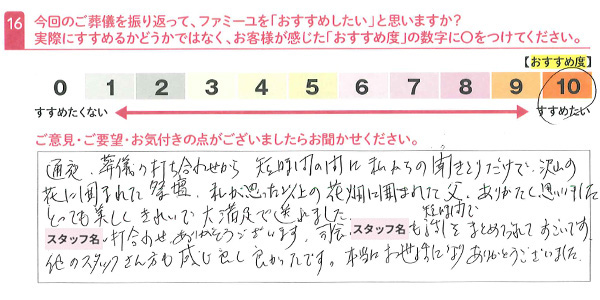 16 今回のご葬儀を振り返って、ファミーユを「おすすめしたい」と思いますか？
実際にすすめるかどうかではなく、お客様が感じた「おすすめ度」の数字に〇をつけてください。
【おすすめ度】
0 1 2 3 4 5 6 7 8 9 10
すすめたくない すすめたい
ご意見・ご要望・お気付きの点がございましたらお聞かせください。
通夜、葬儀の打ち合わせから 短時間の間に 私たちの聞きとりだけで、沢山の
花に囲まれた祭壇、私が思った以上の花畑に囲まれた父、ありがたく思いました
とっても美しくきれいで大満足で送れました。
短時間で
スタッフ名 打合わせ、ありがとうございます。司会、スタッフ名 も はなしをまとめられてすごいです。
他のスタッフさん方も感じ良く良かったです。本当にお世話になりありがとうございました。